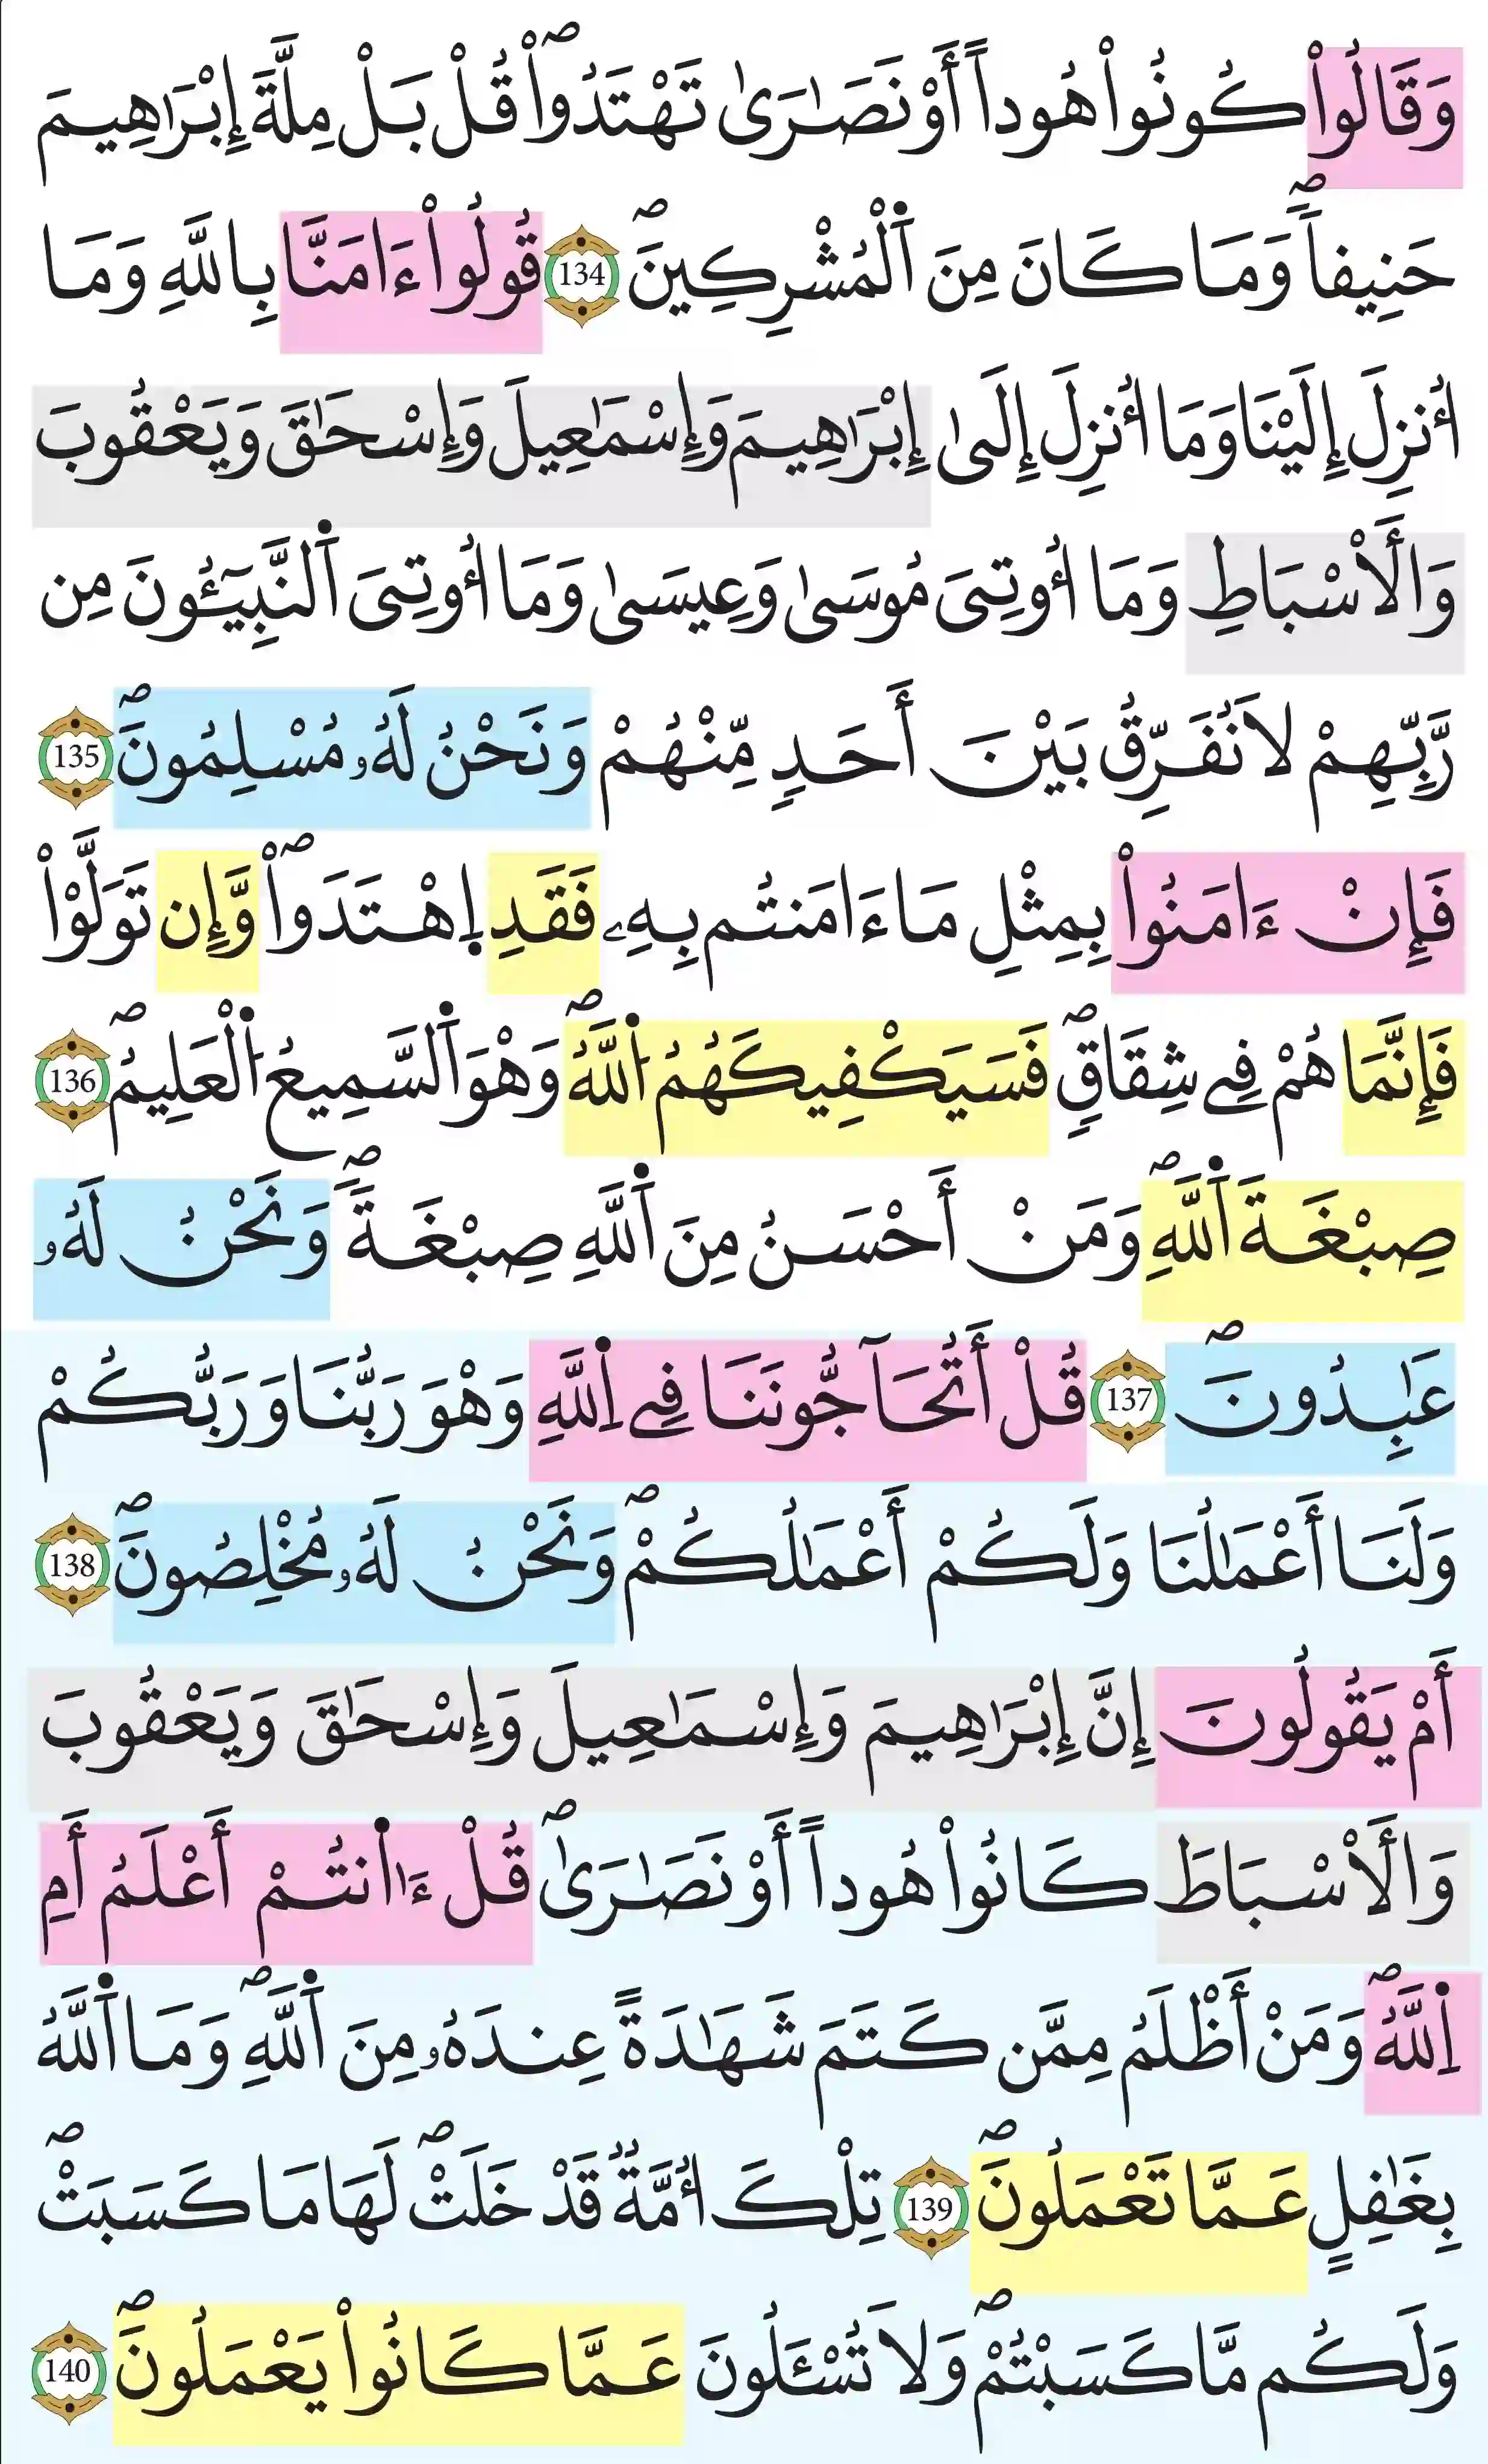 وَقَالُواْ كُونُواْ هُوداً أَوْ نَصَٰرَىٰ تَهْتَدُواْۖ قُلْ بَلْ مِلَّةَ إِبْرَٰهِيمَ
حَنِيفاٗۖ وَمَا كَانَ مِنَ اَ۬لْمُشْرِكِينَۖ 134 قُولُواْ ءَامَنَّا بِاللَّهِ وَمَا
أُنزِلَ إِلَيْنَا وَمَا أُنزِلَ إِلَىٰ إِبْرَٰهِيمَ وَإِسْمَٰعِيلَ وَإِسْحَٰقَ وَيَعْقُوبَ
وَالْأَسْبَاطِ وَمَا أُوتِيَ مُوسَىٰ وَعِيسَىٰ وَمَا أُوتِيَ اَ۬لنَّبِيـُٔونَ مِن
رَّبِّهِمْ لَا نُفَرِّقُ بَيْنَ أَحَدٖ مِّنْهُمْ وَنَحْنُ لَهُۥ مُسْلِمُونَۖ 135
فَإِنْ ءَامَنُواْ بِمِثْلِ مَا ءَامَنتُم بِهِۦ فَقَدِ اِ۪هْتَدَواْۖ وَّإِن تَوَلَّوْاْ
فَإِنَّمَا هُمْ فِے شِقَاقٖۖ فَسَيَكْفِيكَهُمُ اُ۬للَّهُۖ وَهْوَ اَ۬لسَّمِيعُ اُ۬لْعَلِيمُۖ 136
صِبْغَةَ اَ۬للَّهِۖ وَمَنْ أَحْسَنُ مِنَ اَ۬للَّهِ صِبْغَةٗۖ وَنَحْنُ لَهُۥ
عَٰبِدُونَۖ 137 قُلْ أَتُحَآجُّونَنَا فِے اِ۬للَّهِ وَهْوَ رَبُّنَا وَرَبُّكُمْ
وَلَنَا أَعْمَٰلُنَا وَلَكُمْ أَعْمَٰلُكُمْۖ وَنَحْنُ لَهُۥ مُخْلِصُونَۖ 138
أَمْ يَقُولُونَ إِنَّ إِبْرَٰهِيمَ وَإِسْمَٰعِيلَ وَإِسْحَٰقَ وَيَعْقُوبَ
وَالْأَسْبَاطَ كَانُواْ هُوداً أَوْ نَصَٰرَىٰۖ قُلْ ءَٰا۬نتُمْ أَعْلَمُ أَمِ
اِ۬للَّهُۖ وَمَنْ أَظْلَمُ مِمَّن كَتَمَ شَهَٰدَةً عِندَهُۥ مِنَ اَ۬للَّهِۖ وَمَا اَ۬للَّهُ
بِغَٰفِلٍ عَمَّا تَعْمَلُونَۖ 139 تِلْكَ أُمَّةٞ قَدْ خَلَتْۖ لَهَا مَا كَسَبَتْۖ
وَلَكُم مَّا كَسَبْتُمْۖ وَلَا تُسْـَٔلُونَ عَمَّا كَانُواْ يَعْمَلُونَۖ 140